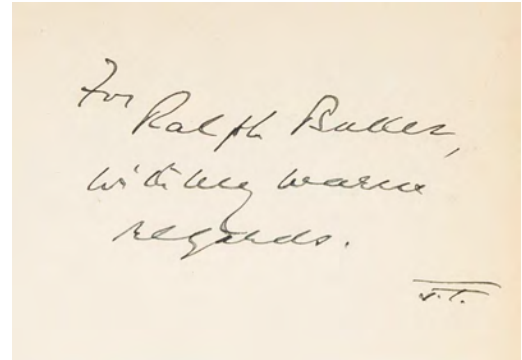 For
Ralph Butler,
with my warm
regards.
J.T.